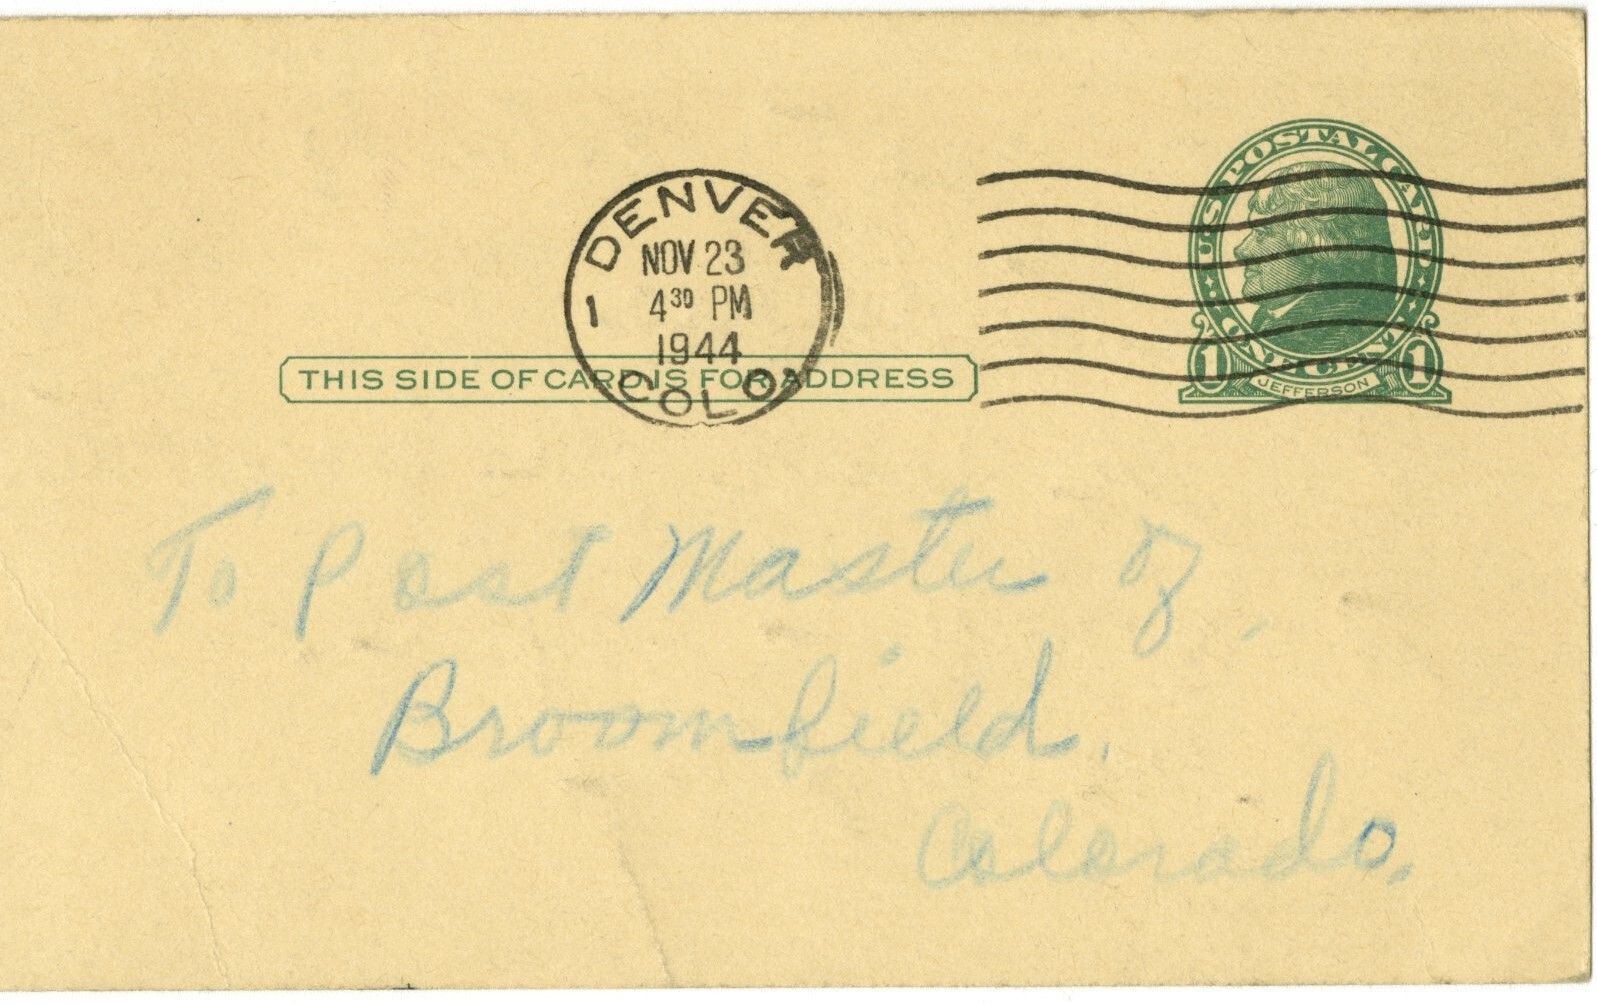 U·S·POSTAL CARD
DENVER
NOV 23
4³⁰ PM
1
1944
COLO
THIS SIDE OF CARD IS FOR ADDRESS
1 ONE CENT 1
JEFFERSON
To Post Master of,
Broomfield.
Colorado.